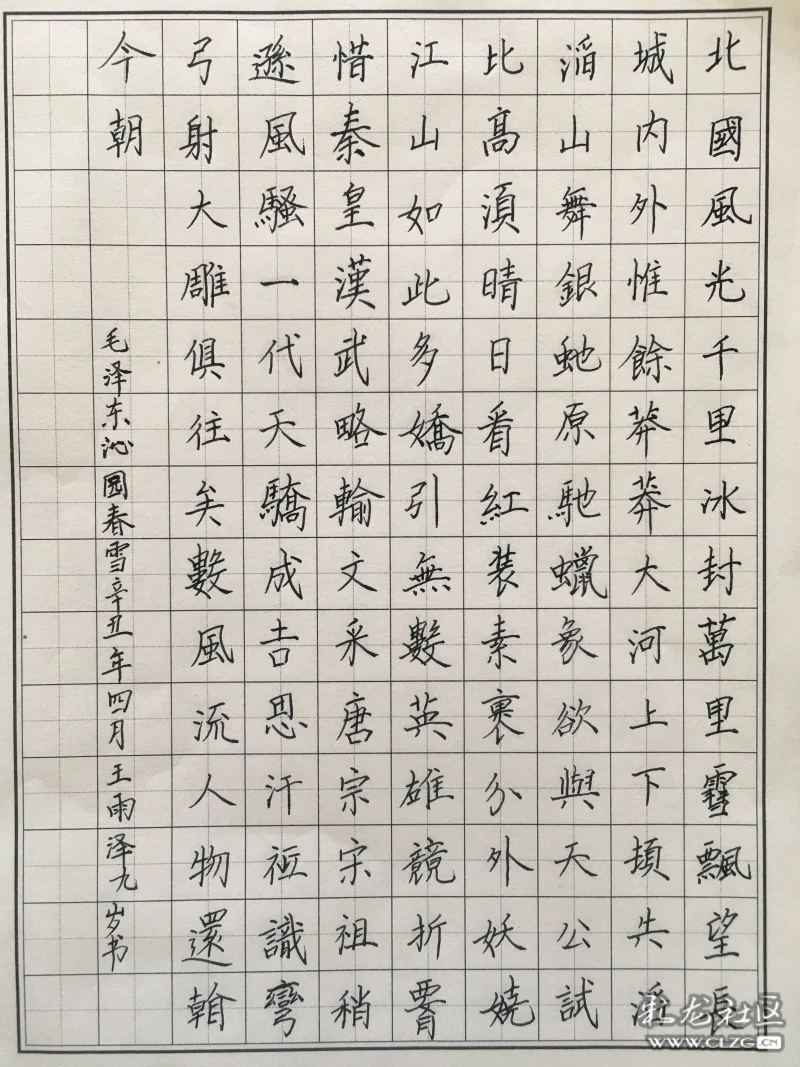 北國風光千里冰封萬里雪飄望長
城内外惟餘莽莽大河上下頓失滔
滔山舞銀虵原馳蠟象欲與天公試
比高須晴日看紅装素裹分外妖嬈
江山如此多嬌引無數英雄競折腰
惜秦皇漢武略輸文采唐宗宋祖稍
遜風騷一代天驕成吉思汗祗識彎
弓射大雕俱往矣數風流人物還看
今朝
毛泽东沁园春雪辛丑年四月王雨泽九岁书
彩龙社区
WWW.CLZG.CN